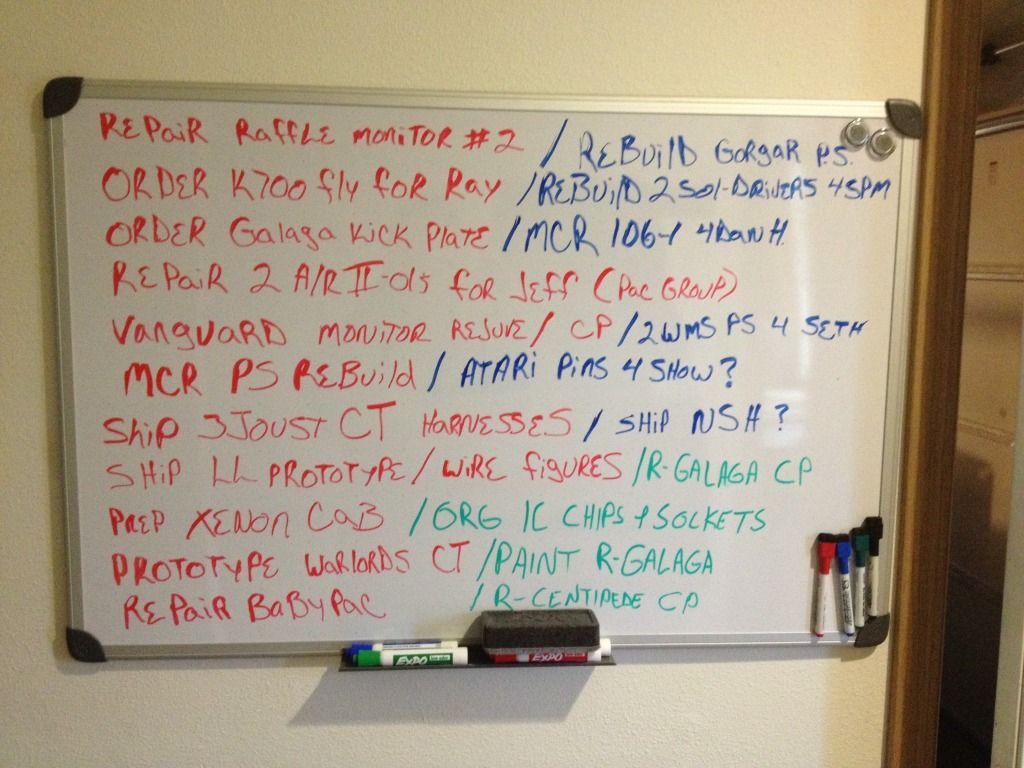 REPAIR RAFFLE MONITOR #2 / REBUILD GORGAR P.S.
ORDER K700 FLY FOR RAY / REBUILD 2 SOL-DRIVERS 4 SPM
ORDER GALAGA KICK PLATE / MCR 106-1 4 DAN H.
REPAIR 2 A/R II-01s FOR JEFF (PAC GROUP)
VANGUARD MONITOR REJUVE / CP / 2 WMS PS 4 SETH
MCR PS REBUILD / ATARI PINS 4 SHOW?
SHIP 3 JOUST CT HARNESSES / SHIP NSH?
SHIP LL PROTOTYPE / WIRE FIGURES / R-GALAGA CP
PREP XENON CAB / ORG IC CHIPS + SOCKETS
PROTOTYPE WARLORDS CT / PAINT R-GALAGA
REPAIR BABYPAC / R-CENTIPEDE CP
EXPO EXPO